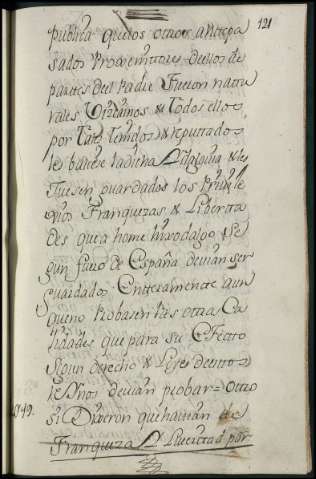 121
publica que los otros antepa
sados Projenitores de ellos de
partes del Padre fueron natu
rales Vizcainos & todos ellos
por tales tenidos & reputados
les baliese la dicha & les
fuesen guardados los Privile
gios Franquezas & Liverta
des que a home hijodalgo Se
gun fuero de España devian ser
guardados Enteramente aun
que no probasen las otras Ca
lidades que para su Efecto
Segun derecho & Leyes destos
Reynos devian probar = Otro
si Dixeron que havian de
Franqueza & Livertad por